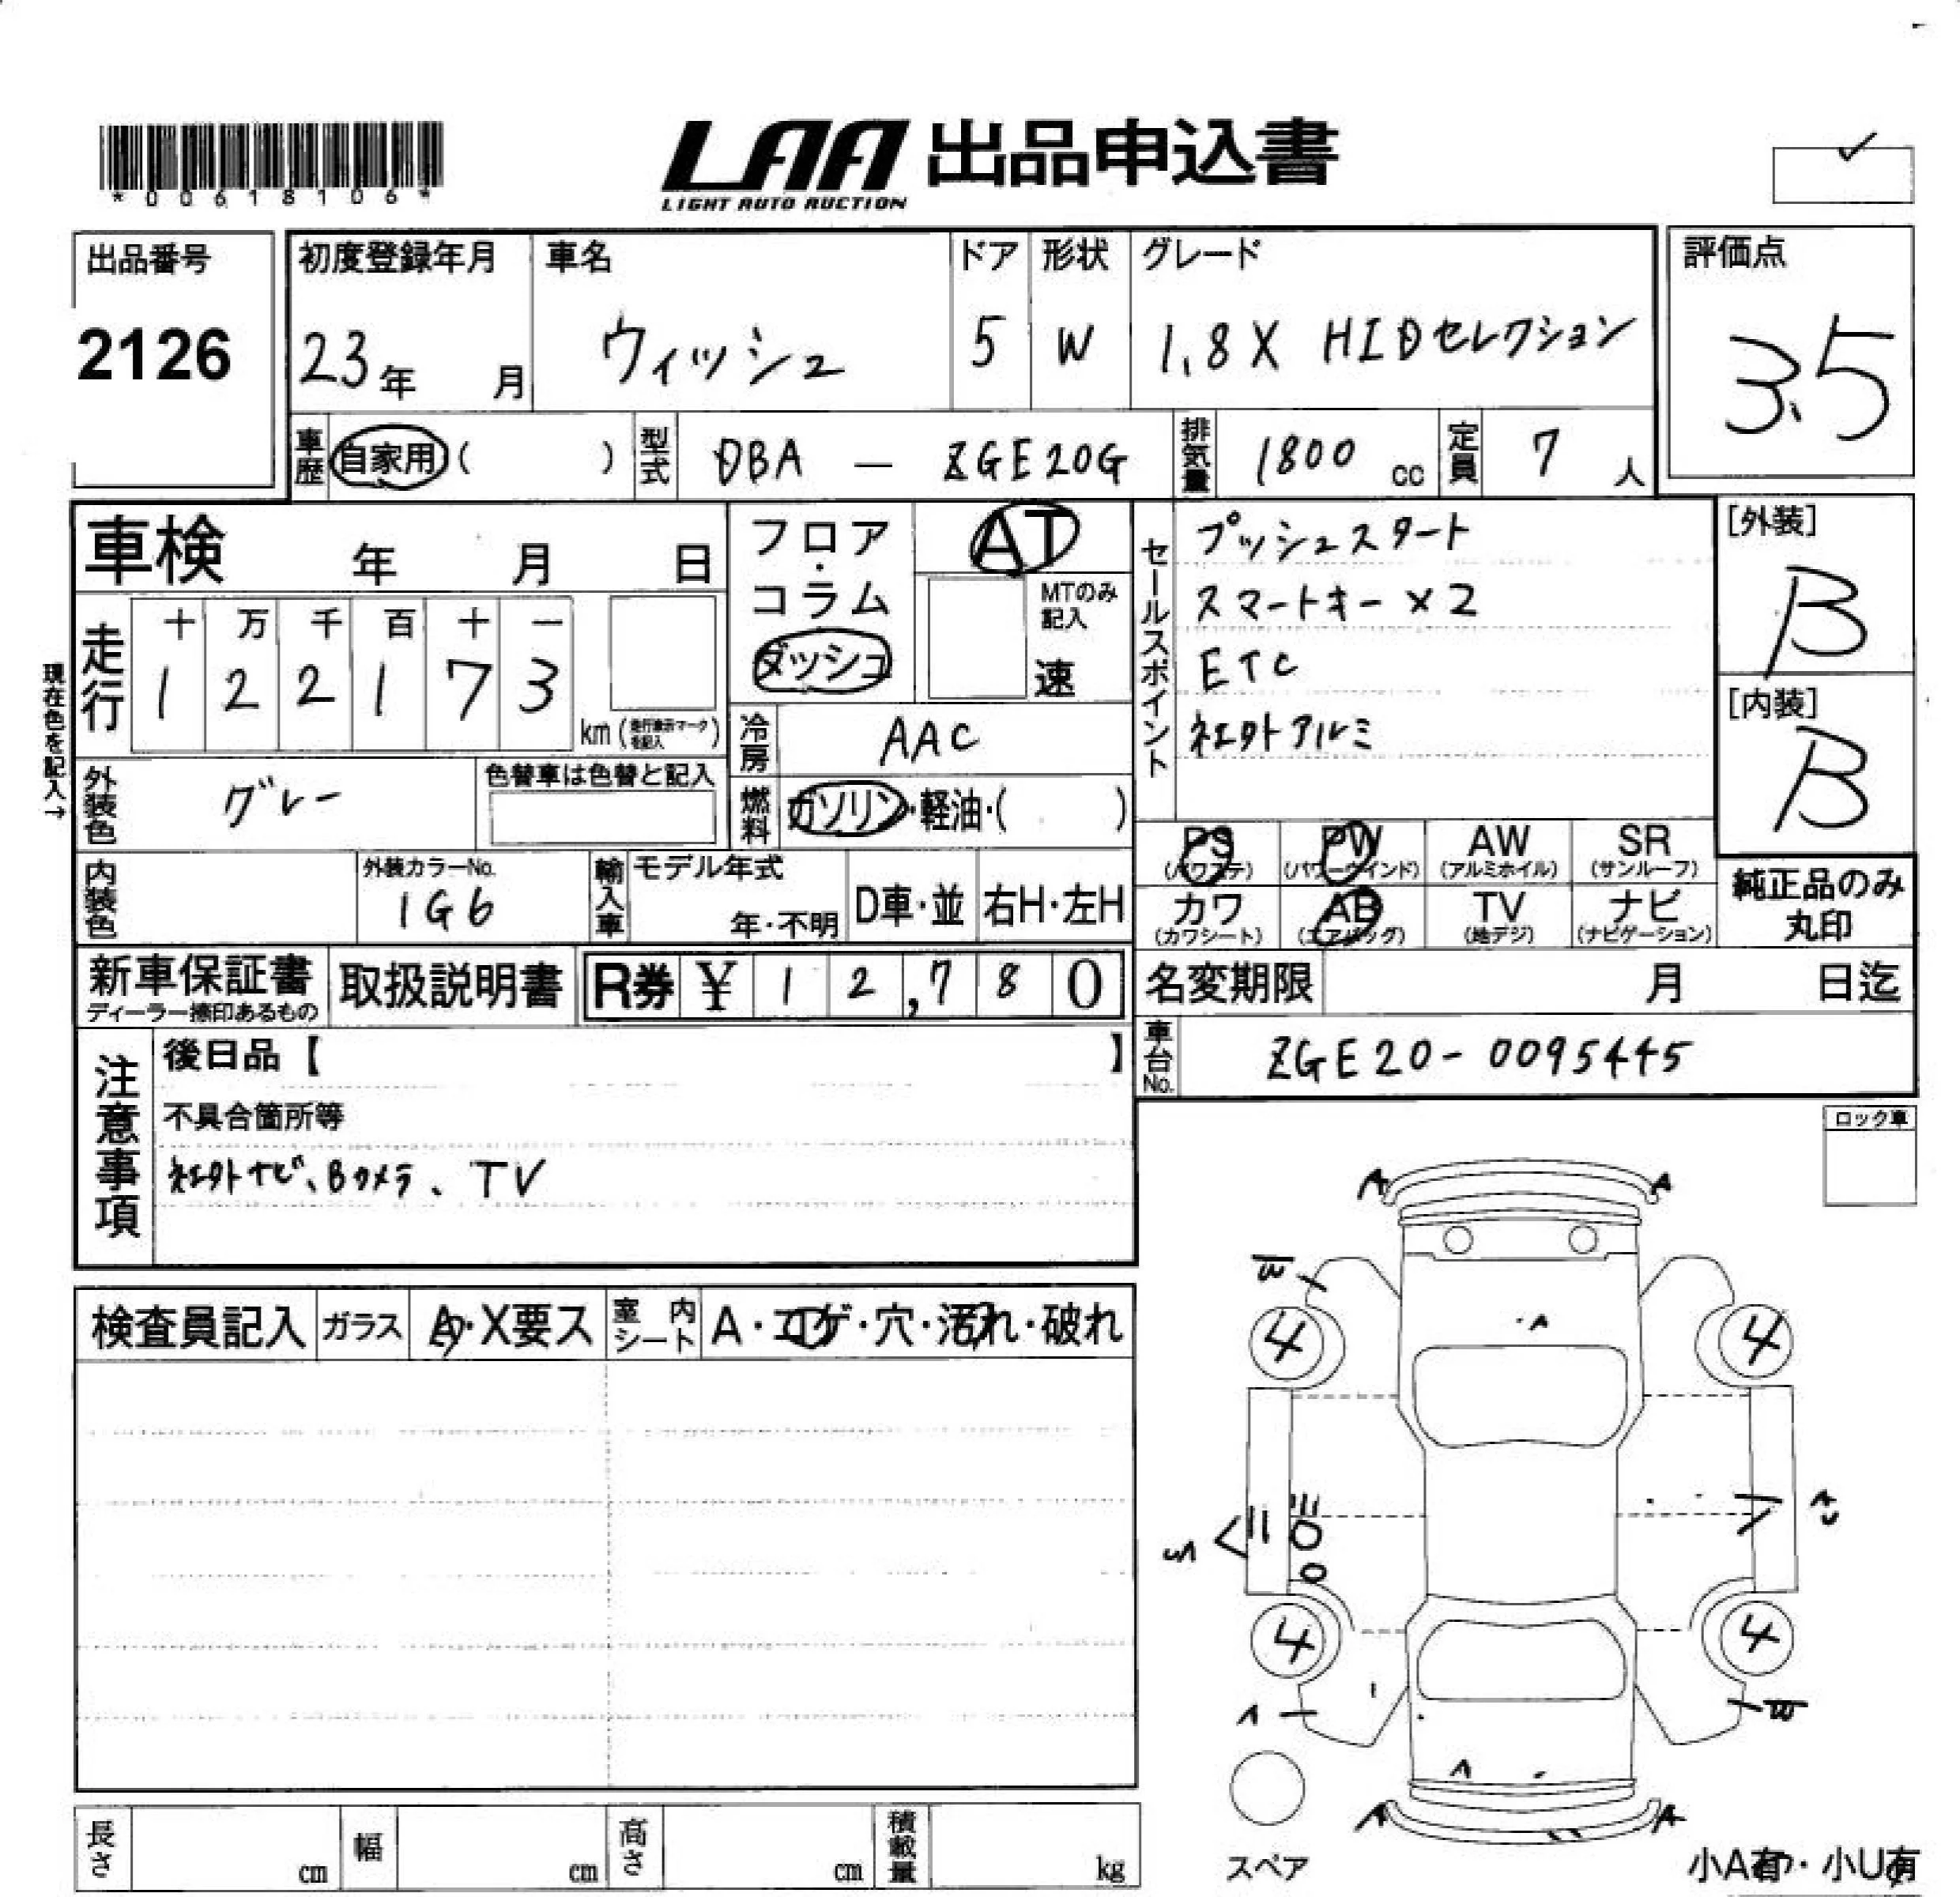 *00618106*
LAA 出品申込書
LIGHT AUTO AUCTION
出品番号
2126
初度登録年月
23年 月
車名
ウィッシュ
ドア
5
形状
W
グレード
1.8X HIDセレクション
評価点
3.5
車歴 自家用( )
型式 DBA — ZGE20G
排気量 1800 cc
定員 7 人
車検 年 月 日
フロア・コラム
ダッシュ
AT
MTのみ記入
速
セールスポイント
プッシュスタート
スマートキー×2
ETC
社外アルミ
[外装]
B
[内装]
B
現在色を記入→
走行
十 万 千 百 十 一
1 2 2 1 7 3
km(走行表示マークを記入)
冷房 AAC
外装色 グレー
色替車は色替と記入
燃料 ガソリン・軽油・( )
PS (パワステ)
PW (パワーウインド)
AW (アルミホイル)
SR (サンルーフ)
カワ (カワシート)
AB (エアバッグ)
TV (地デジ)
ナビ (ナビゲーション)
純正品のみ丸印
内装色
外装カラーNo.
1G6
輸入車
モデル年式
年・不明
D車・並
右H・左H
新車保証書
ディーラー捺印あるもの
取扱説明書
R券 ¥ 1 2,7 8 0
名変期限 月 日迄
車台No. ZGE20-0095445
注意事項
後日品【 】
不具合箇所等
社外ナビ、Bカメラ、TV
ロック車
検査員記入
ガラス
A・X要ス
室内シート
A・コゲ・穴・汚れ・破れ
A A
A
4 4
4 4
A A
スペア
小A有・小U有
長さ cm
幅 cm
高さ cm
積載量 kg